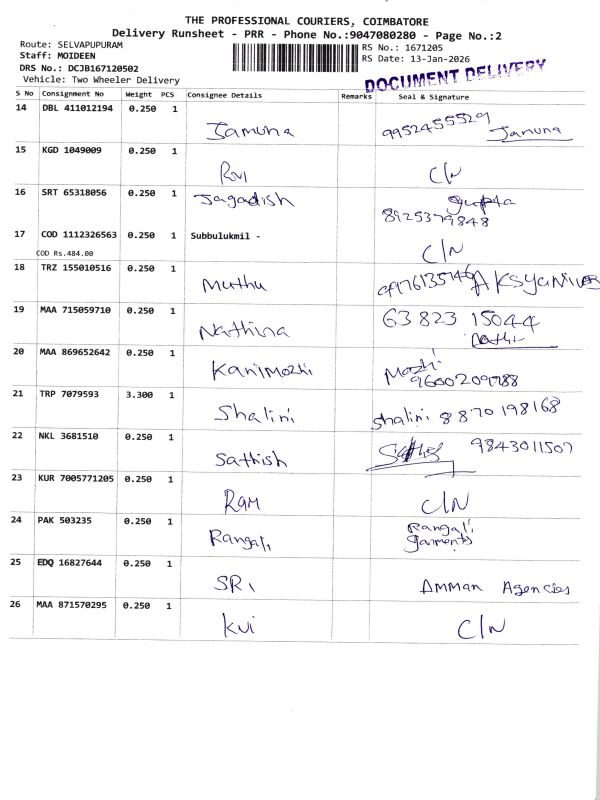 THE PROFESSIONAL COURIERS, COIMBATORE
Delivery Runsheet - PRR - Phone No.:9047080280 - Page No.:2
Route: SELVAPUPURAM
Staff: MOIDEEN
DRS No.: DCJB167120502
Vehicle: Two Wheeler Delivery
RS No.: 1671205
RS Date: 13-Jan-2026
DOCUMENT DELIVERY
S No Consignment No Weight PCS Consignee Details Remarks Seal & Signature
14 DBL 411012194 0.250 1 Jamuna 9952455529 Januna
15 KGD 1049009 0.250 1 Rvi C/N
16 SRT 65318056 0.250 1 Jagadish Gupta 8925379848
17 COD 1112326563 0.250 1 Subbulukmil - C/N
COD Rs.484.00
18 TRZ 155010516 0.250 1 Muthu
19 MAA 715059710 0.250 1 Nathina 63823 15044 Nathi
20 MAA 869652642 0.250 1 Kanimozhi Mozhi 9600209788
21 TRP 7079593 3.300 1 Shalini shalini 8870198168
22 NKL 3681510 0.250 1 Sathish 9843011507
23 KUR 7005771205 0.250 1 Ram C/N
24 PAK 503235 0.250 1 Rangali Rangali garments
25 EDQ 16827644 0.250 1 SRi Amman Agencies
26 MAA 871570295 0.250 1 kvi C/N